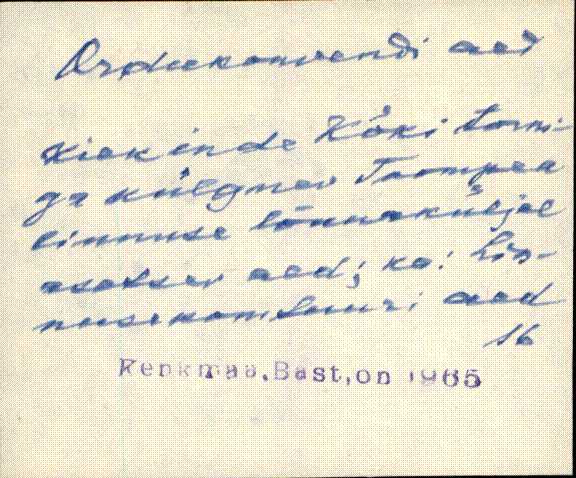 Orduekonvendi aed
Kiek in de Köki torni-
ga külgnev Toompea
linnuse lõunaküljel
asetsev aed; ka: Lin-
nusekomtuuri aed
16
Kenkmaa, Bast,on 1965